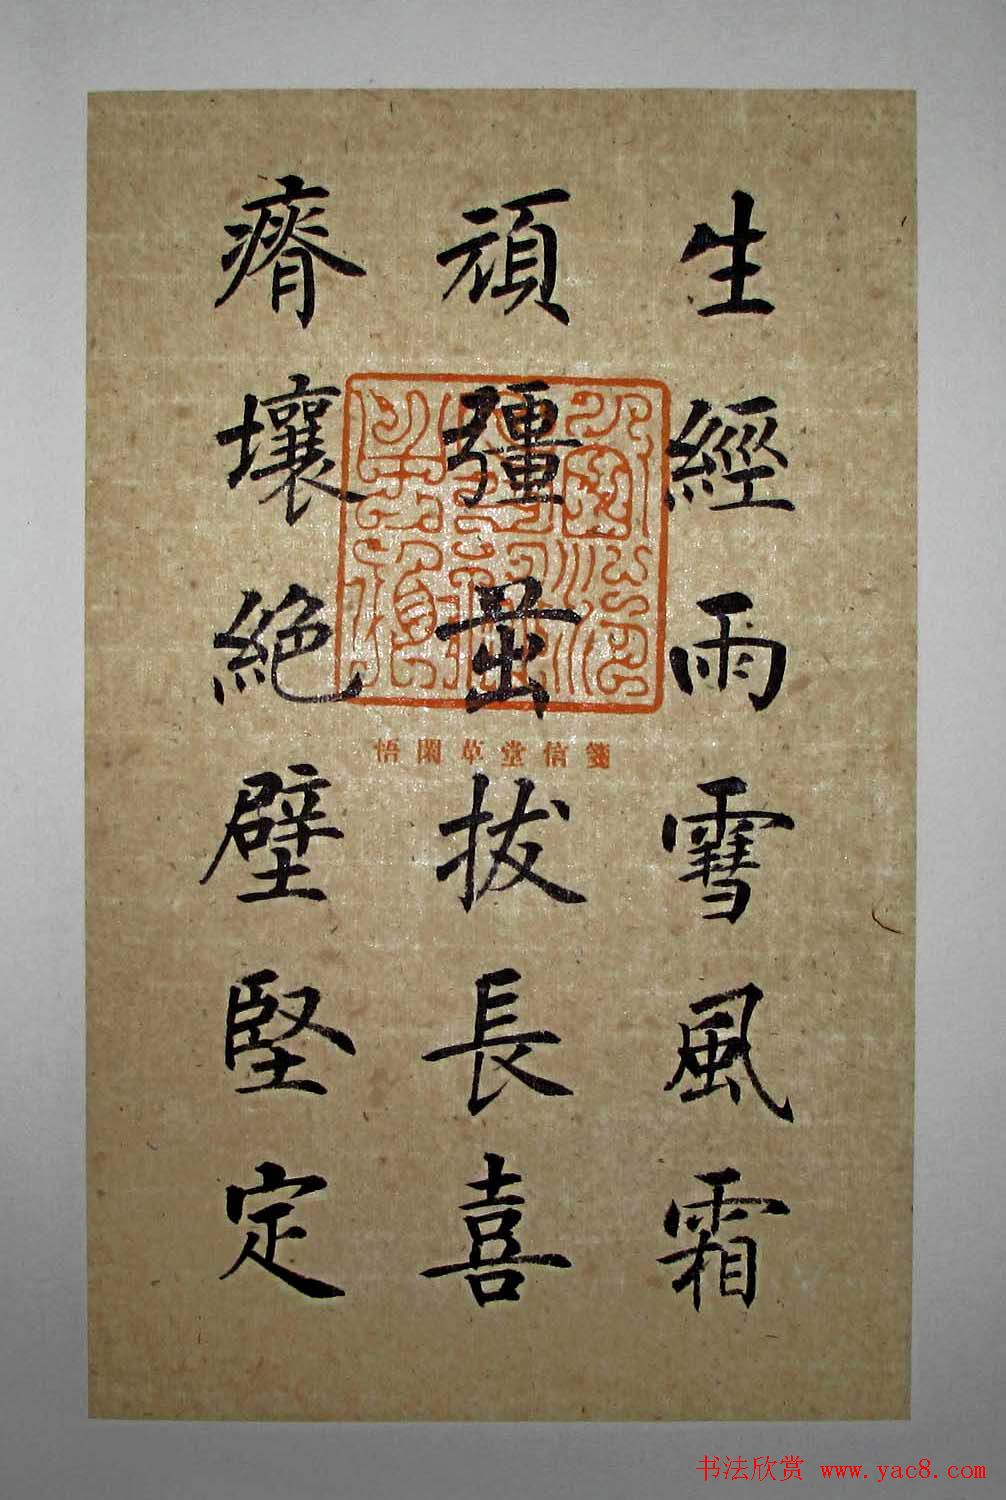 生經雨雪風霜
頑彊茁拔長喜
瘠壤絕壁堅定
悟閑草堂信箋
书法欣赏 www.yac8.com